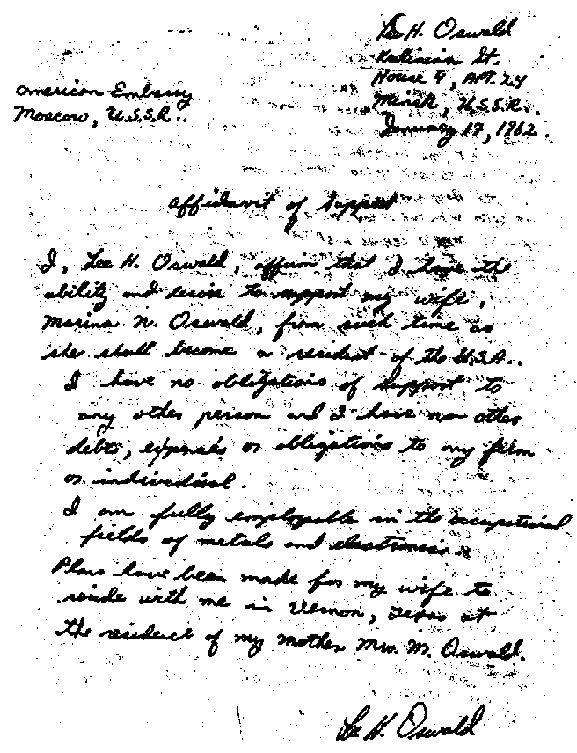 Lee H. Oswald
Kalinian St.
House 4, APT. 24
American Embassy
Minsk, U.S.S.R.
Moscow, U.S.S.R..
January 17, 1962.
Affidavit of Support
I, Lee H. Oswald, affirm that I have the
ability and desire to support my wife,
Marina N. Oswald, from such time as
she shall become a resident of the U.S.A..
I have no obligations of support to
any other person and I have no other
debts, expenses or obligations to any firm
or individual.
I am fully employable in the occupational
fields of metals and electronics.
Plans have been made for my wife to
reside with me in Vernon, Texas at
the residence of my mother Mrs. M. Oswald.
Lee H. Oswald